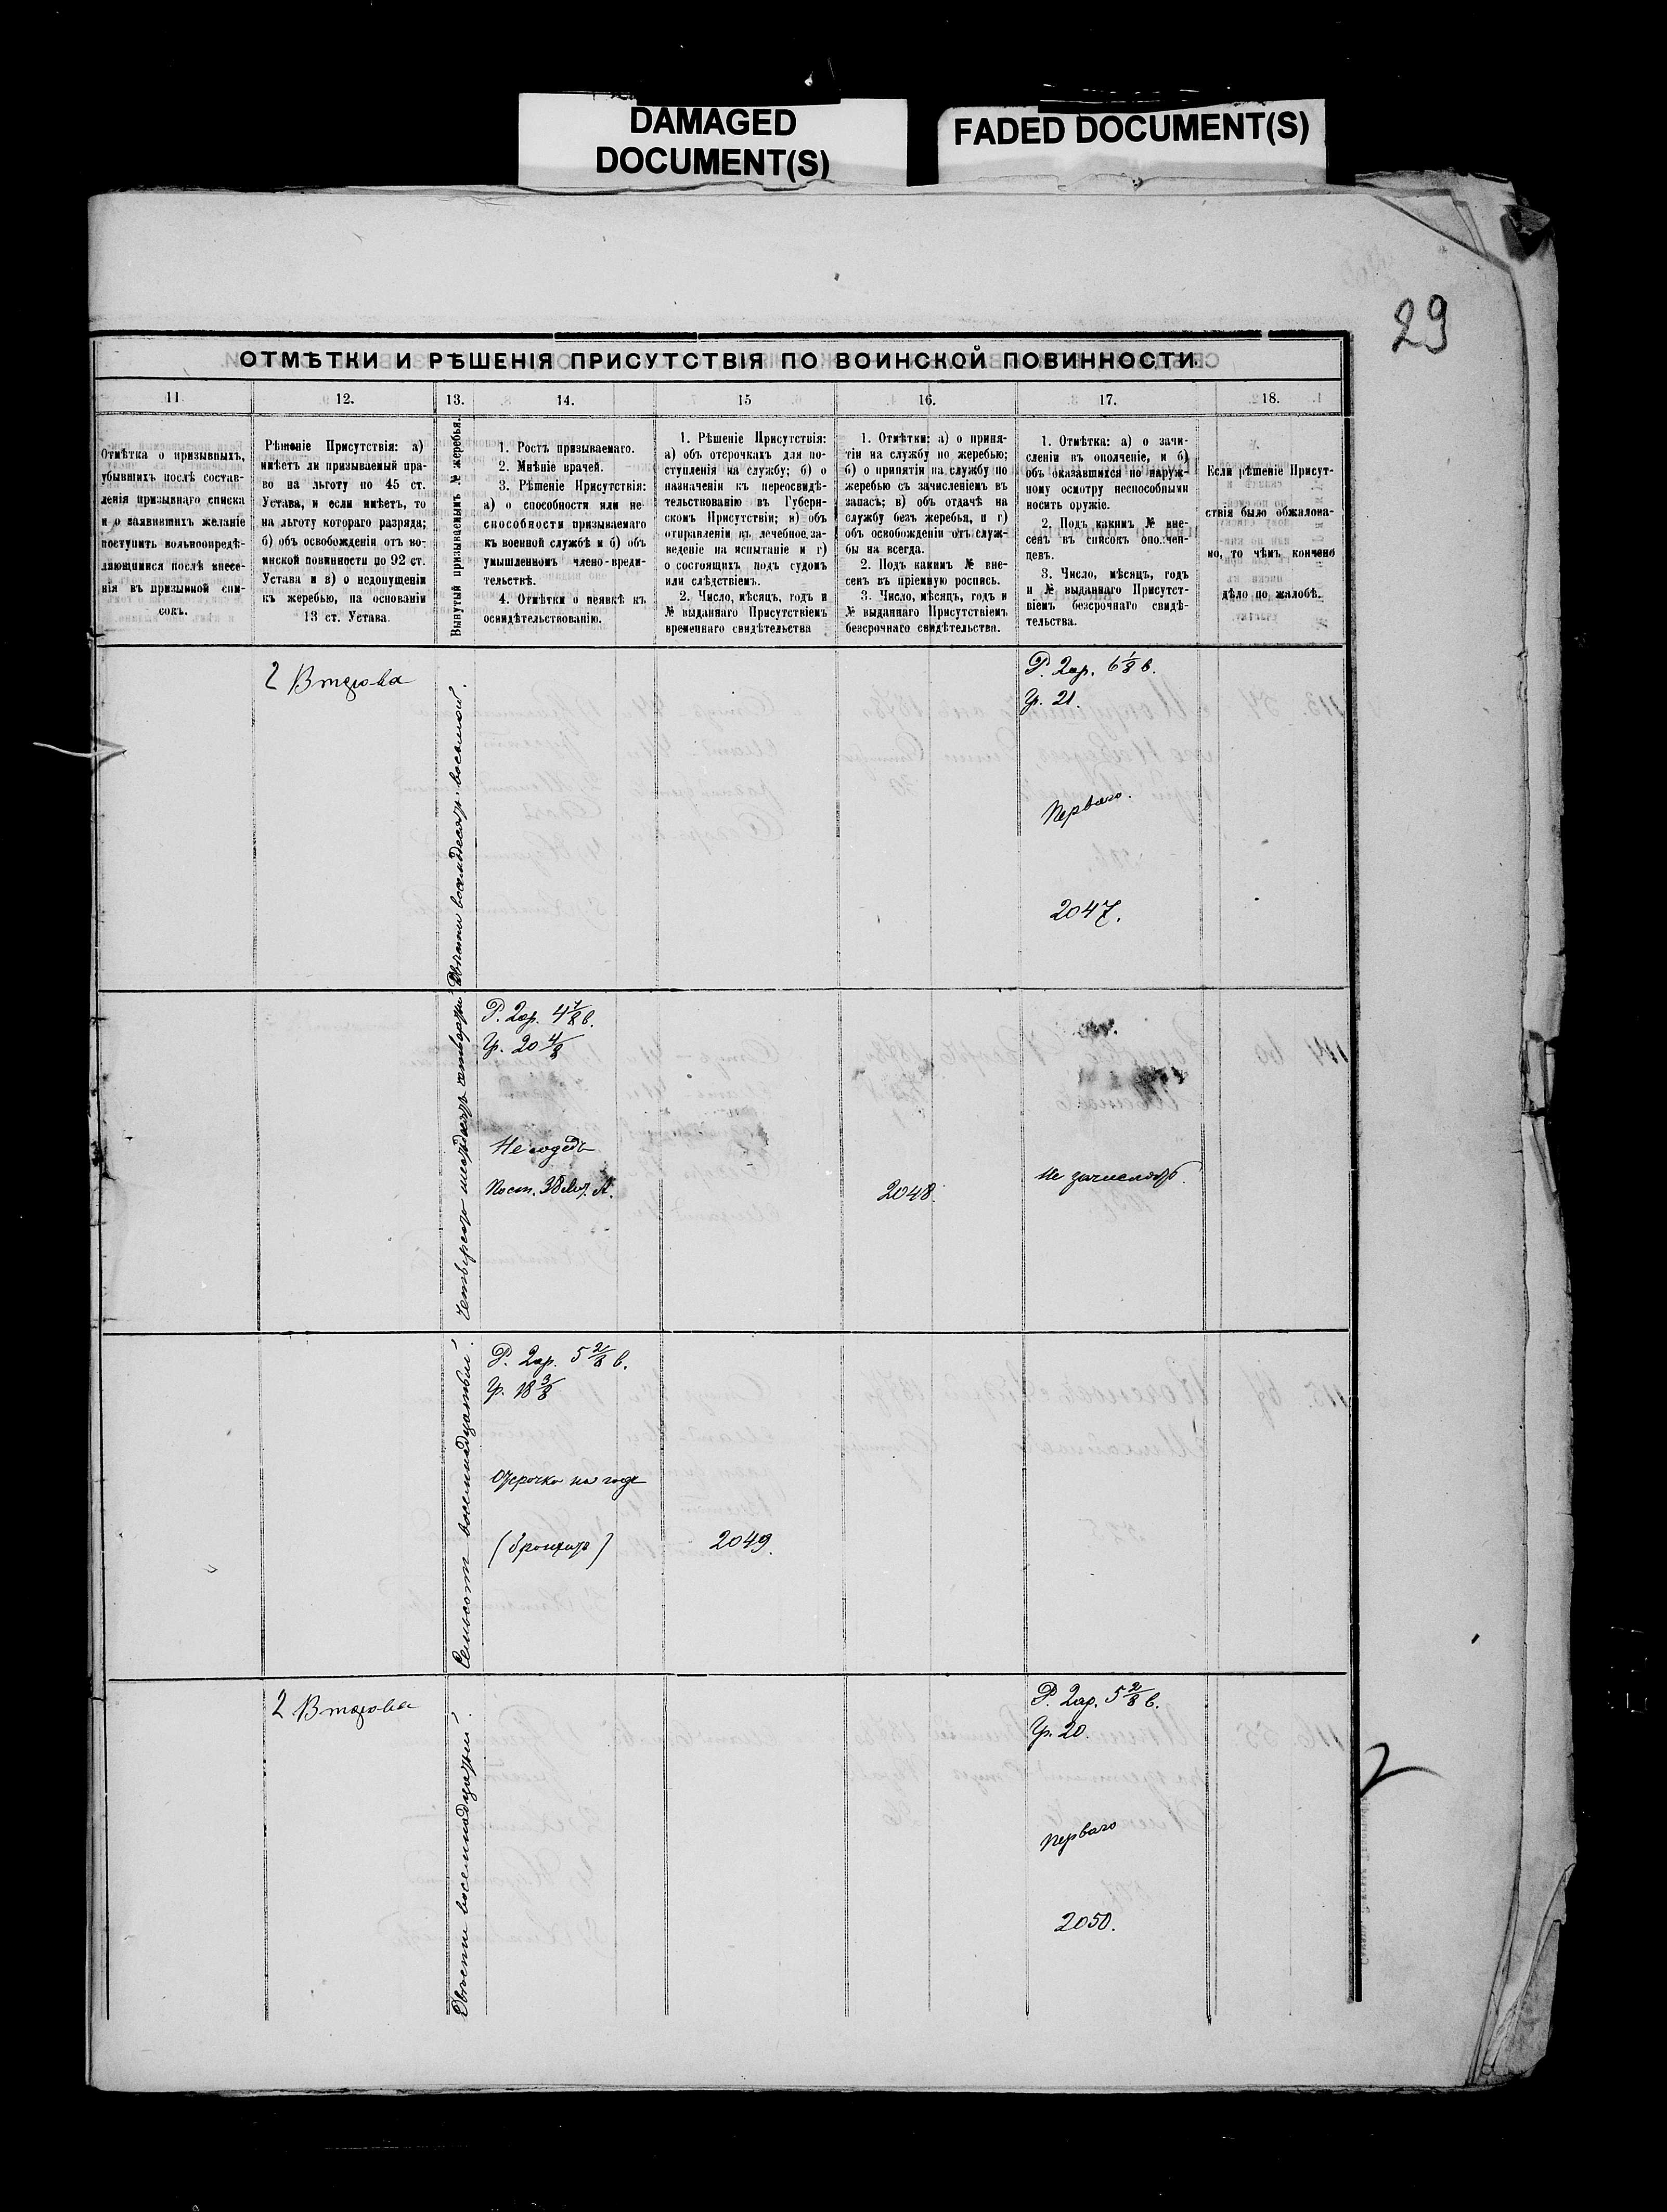 DAMAGED
DOCUMENT(S)
FADED DOCUMENT(S)
29
ОТМѢТКИ И РѢШЕНІЯ ПРИСУТСТВІЯ ПО ВОИНСКОЙ ПОВИННОСТИ.
11.
12.
13.
14.
15
16.
17.
18.
Отмѣтка о призывныхъ,
убывшихъ послѣ состав-
ленія призывнаго списка
и о заявившихъ желаніе
поступить вольноопредѣ-
ляющимися послѣ внесе-
нія въ призывной спи-
сокъ.
Рѣшеніе Присутствія: а)
имѣетъ ли призываемый пра-
во на льготу по 45 ст.
Устава, и если имѣетъ, то
на льготу котораго разряда;
б) объ освобожденіи отъ во-
инской повинности по 92 ст.
Устава и в) о недопущеніи
къ жеребью, на основаніи
13 ст. Устава.
Вынутый призываемымъ № жеребья.
1. Ростъ призываемаго.
2. Мнѣніе врачей.
3. Рѣшеніе Присутствія:
а) о способности или не-
способности призываемаго
къ военной службѣ и б) объ
умышленномъ члено-вреди-
тельствѣ.
4. Отмѣтки о неявкѣ къ
освидѣтельствованію.
1. Рѣшеніе Присутствія:
а) объ отсрочкахъ для по-
ступленія на службу; б) о
назначеніи къ переосвидѣ-
тельствованію въ Губерн-
скомъ Присутствіи; в) объ
отправленіи въ лечебное за-
веденіе на испытаніе и г)
о состоящихъ подъ судомъ
или слѣдствіемъ.
2. Число, мѣсяцъ, годъ и
№ выданнаго Присутствіемъ
временнаго свидѣтельства
1. Отмѣтки: а) о приня-
тіи на службу по жеребью;
б) о принятіи на службу по
жеребью съ зачисленіемъ въ
запасъ; в) объ отдачѣ на
службу безъ жеребья, и г)
объ освобожденіи отъ служ-
бы на всегда.
2. Подъ какимъ № вне-
сенъ въ пріемную роспись.
3. Число, мѣсяцъ, годъ и
№ выданнаго Присутствіемъ
безсрочнаго свидѣтельства.
1. Отмѣтка: а) о зачи-
сленіи въ ополченіе, и б)
объ оказавшихся по наруж-
ному осмотру неспособными
носить оружіе.
2. Подъ какимъ № вне-
сенъ въ списокъ ополчен-
цевъ.
3. Число, мѣсяцъ, годъ
и № выданнаго Присутст-
віемъ безсрочнаго свидѣ-
тельства.
Если рѣшеніе Присут-
ствія было обжалова-
но, то чѣмъ кончено
дѣло по жалобѣ.
2 Втораго
Двѣсти восемьдесятъ восьмой.
Р. 2ар. 6 1/8 в.
Гр. 21.
Перваго.
2047.
Четыреста шестьдесятъ четвертый
Р. 2ар. 4 7/8 в.
Гр. 20 4/8
Не годедъ
Пост. 38 лит. А.
2048.
Не зачислять.
Семьсотъ восемнадцатый.
Р. 2ар. 5 2/8 в.
Гр. 18 3/8
Отсрочка на годъ
(бронхитъ)
2049.
2 Втораго
Двѣсти восемнадцатый.
Р. 2ар. 5 2/8 в.
Гр. 20.
Перваго
2050.
2